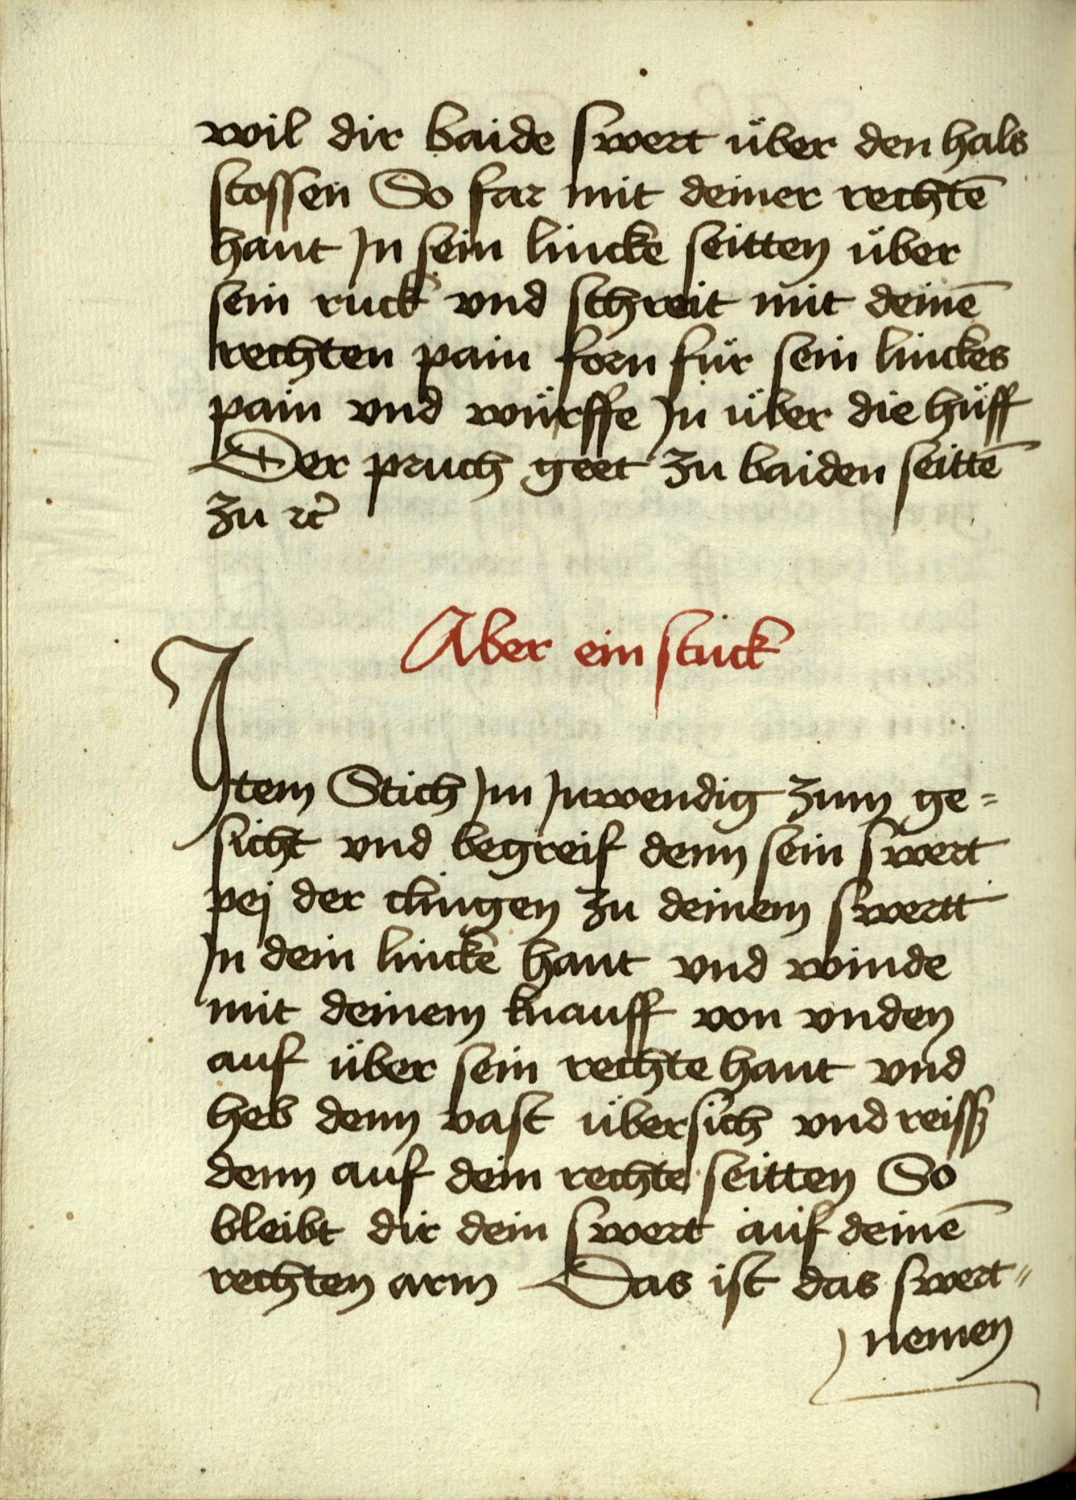 wil dir baide swert über den hals
stossen So far mit deiner rechtē
hant Jn sein lincke seitten über
sein ruck vnd schreit mit deinē
rechten pain forn für sein linckes
pain vnd würffe Jn über die hüff
Der pruch geet zu baiden seittē
zu ꝛc̄
Aber ein stuck
Jtem Stich Jm Jnwendig zum ge=
sicht vnd begreif denn sein swert
pej der clingen zu deinem swertt
Jn dein lincke hant vnd winde
mit deinem knauff von vnden
auf über sein rechte hant vnd
heb denn vast übersich vnd reiſſz
denn auf dein rechte seitten So
bleibt dir dein swert auf deinē
rechten arm Das ist das swert=
nemen